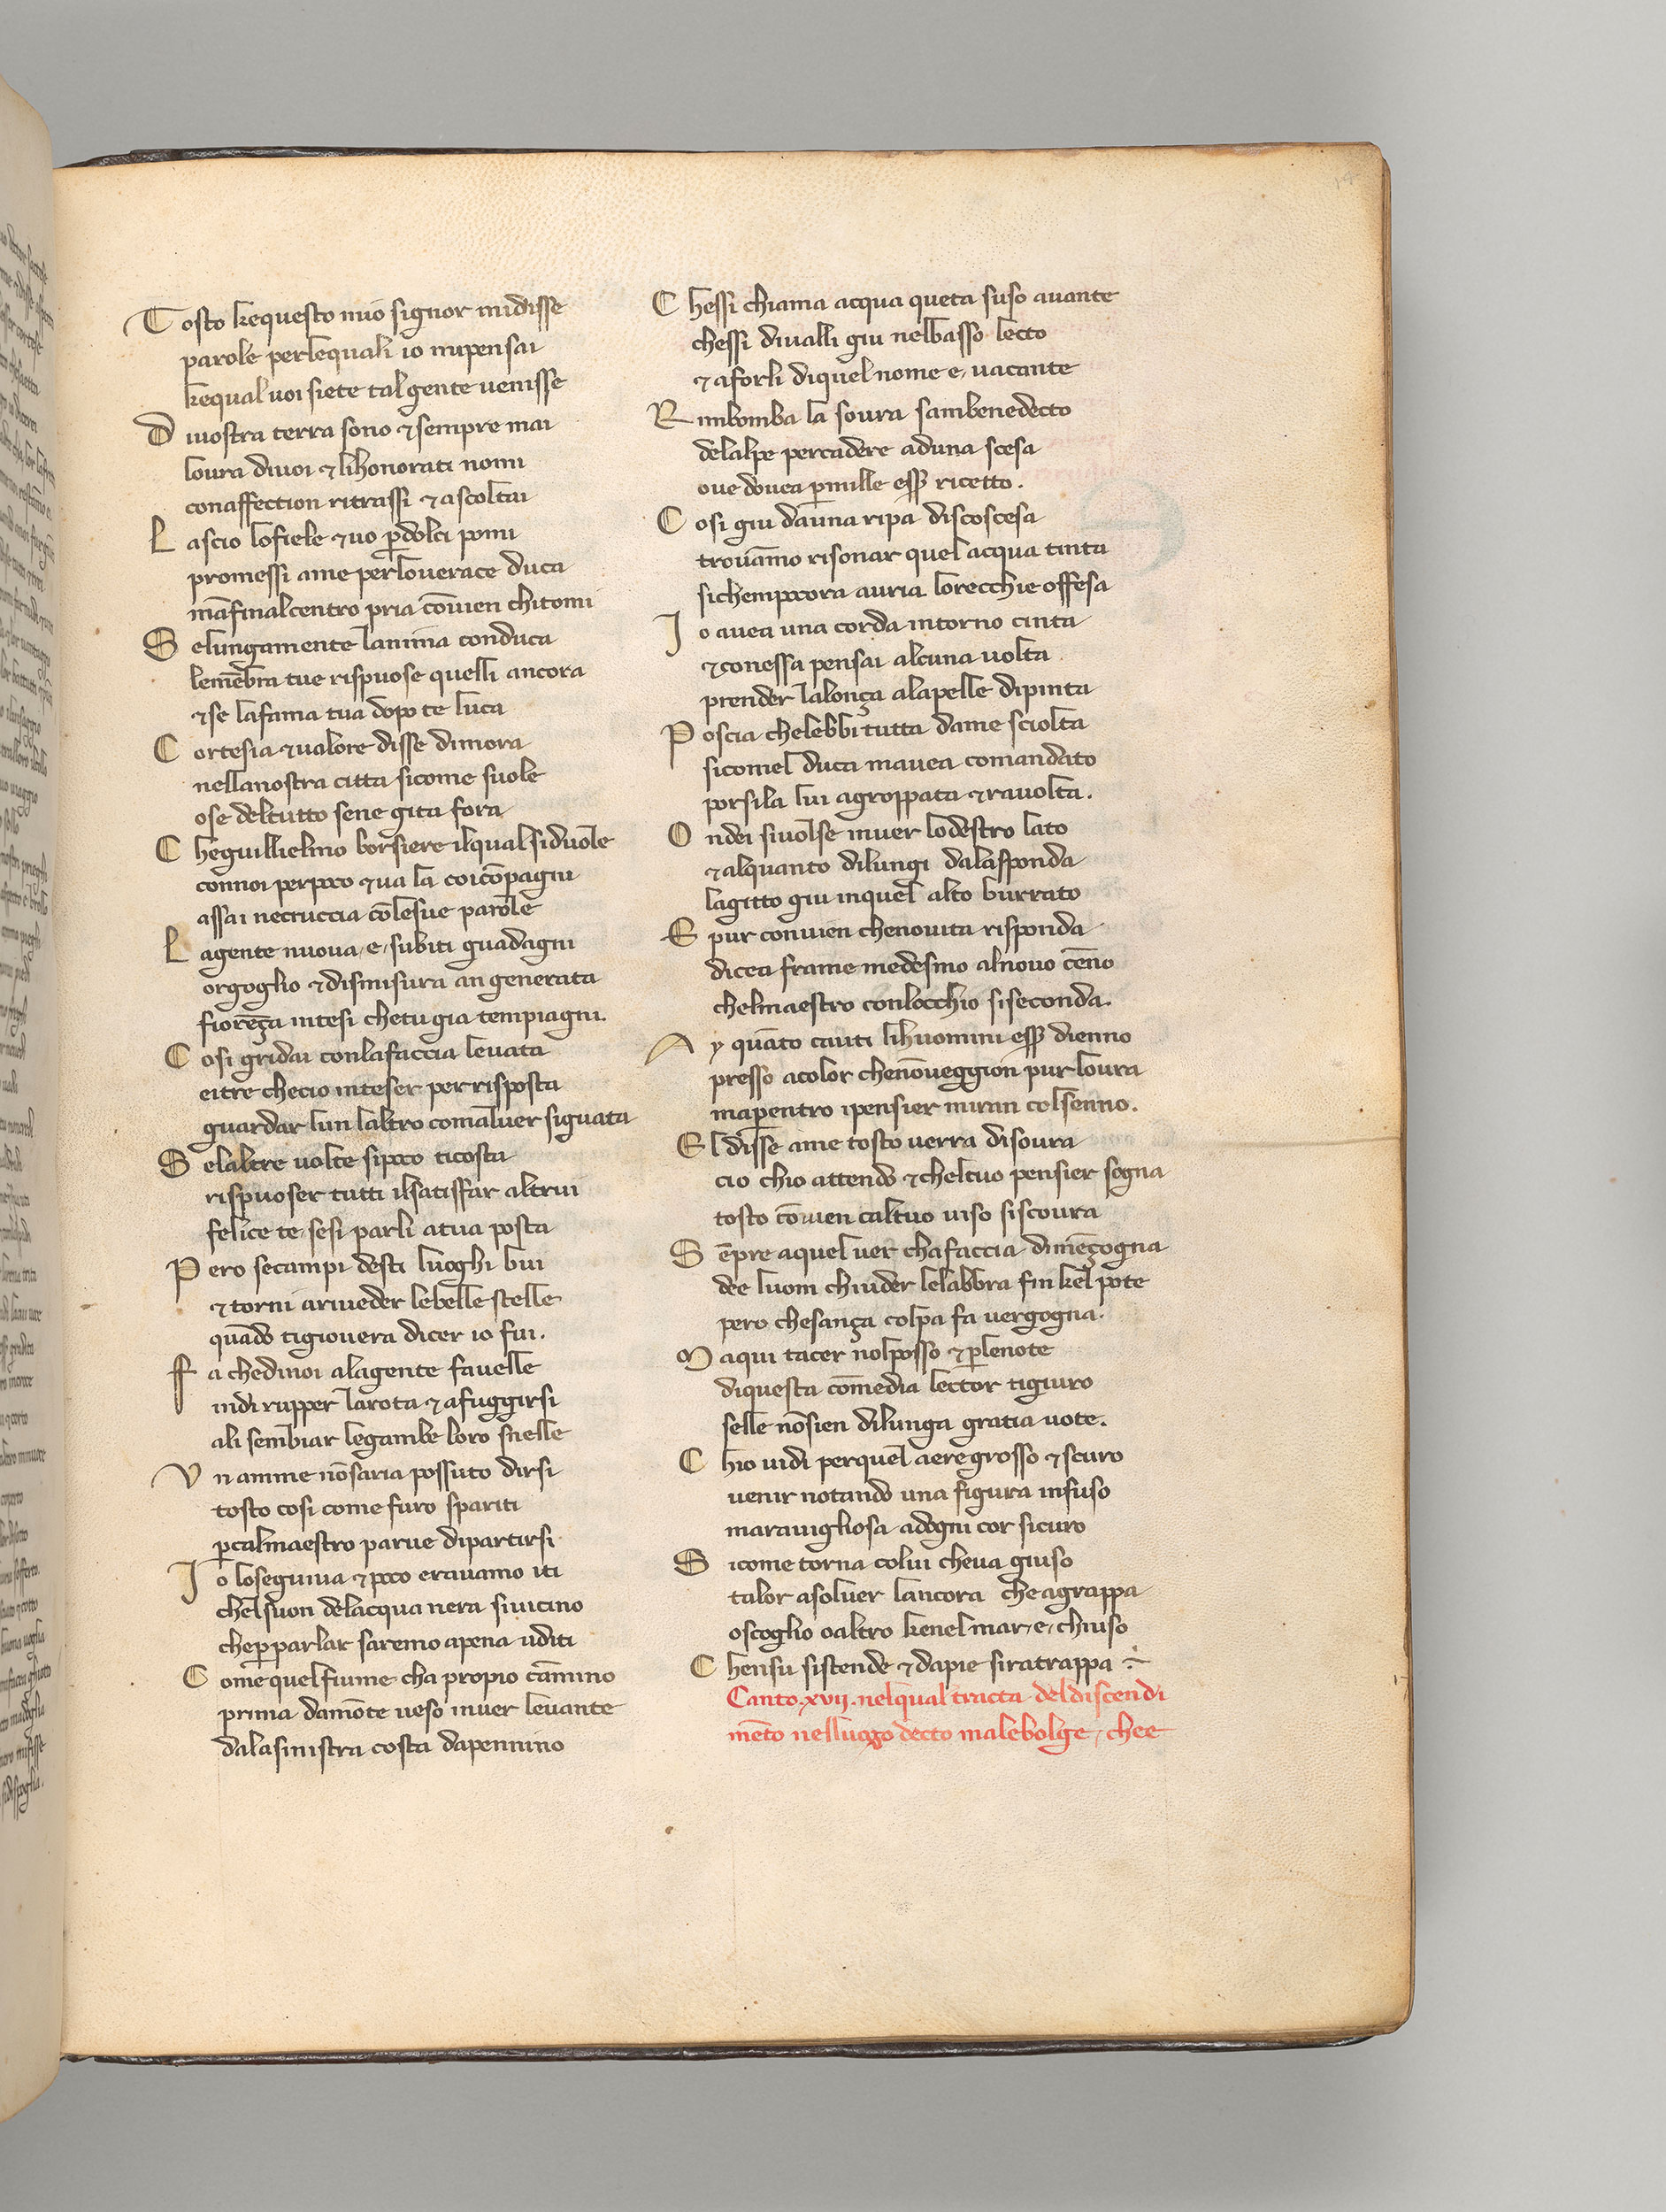 Tosto kequesto mio signor midisse
parole perlequali io mipensai
kequal uoi siete tal gente uenisse
Di uostra terra sono ⁊ sempre mai
loura diuoi ⁊ lihonorati nomi
conaffection ritrassi ⁊ ascoltai
Lascio lofiele ⁊ uo ꝑdolci pomi
promessi ame perlouerace duca
māfinalcentro pria cōuien chitomi
Se lungamente lanima conduca
lemēbra tue rispuose quelli ancora
⁊ se lafama tua dopo te luca
Cortesia ⁊ ualore disse dimora
nellanostra citta sicome suole
ose deltutto sene gita fora
Cheguillielmo borsiere ilqual siduole
connoi perpoco ⁊ ua la coicōpagni
assai necruccia cōlesue parole
Lagente nuoua e subiti guadagni
orgoglio ⁊ dismisura an generata
fiorēça intesi chetu gia tempiagni.
Cosi gridai conlafaccia leuata
eitre checio inteser per risposta
guardar lun laltro comaluer siguata
Se laltre uolte sipoco ticosta
rispuoser tutti ilsatisffar altrui
felice te sesi parli atua posta
Pero secampi desti luoghi bui
⁊ torni ariueder lebelle stelle
quādo tigiouera dicer io fui.
Fa chedinoi alagente fauelle
indi rupper larota ⁊ afuggirsi
ali sembiar legambe loro snelle
Vn amme nōsaria possuto dirsi
tosto cosi come furo spariti
ꝑcalmaestro parue dipartirsi
Io loseguiua ⁊ poco erauamo iti
chelsuon delacqua nera siuicino
cheꝑparlar saremo apena uditi
Come quel fiume cha propio cāmino
prima damōte ueso inuer leuante
dalasinistra costa dapennino
Chessi chiama acqua queta suso auante
chessi diualli giu nelbasso lecto
⁊ aforli diquel nome e uacante
Rimbomba la soura sambenedecto
delalpe percadere aduna scesa
oue douea ꝑmille eſſꝑ ricetto.
Cosi giu dauna ripa discoscesa
trouāmo risonar quel acqua tinta
sichempocora auria lorecchie offesa
Io auea una corda intorno cinta
⁊ conessa pensai alcuna uolta
prender lalonça alapelle dipinta
Poscia chelebbi tutta dame sciolta
sicomel duca mauea comandato
porsila lui agroppata ⁊ rauolta.
Ondei siuolse inuer lodestro lato
⁊ alquanto dilungi dalasponda
lagitto giu inquel alto burrato
E pur conuien chenouita risponda
dicea frame medesmo alnouo cēno
chelmaestro conlocchio siseconda.
Ay quāto cauti lihuomini eſſꝑ dienno
presso acolor chenōueggion pur loura
maꝑentro ipensier miran colsenno.
El disse ame tosto uerra disoura
cio chio attendo ⁊ cheltuo pensier sogna
tosto cōuien caltuo uiso siscoura
Sēpre aquel uer cha faccia dimēçogna
dee luom chiuder lelabbra fin kel pote
pero chesança colpa fa uergogna.
Ma qui tacer nolposso ⁊ ꝑlenote
diquesta comedia lector tigiuro
selle nōsien dilunga gratia uote.
Chio uidi perquel aere grosso ⁊ scuro
uenir notando una figura insuso
marauigliosa adogni cor sicuro
Sicome torna colui cheua giuso
talor asoluer lancora che agrappa
oscoglio oaltro kenel mar e chiuso
Chensu sistende ⁊ dapie siratrappa
Canto .xvij. nelqual tracta deldiscendi
mēto nelluogo decto malebolge chee